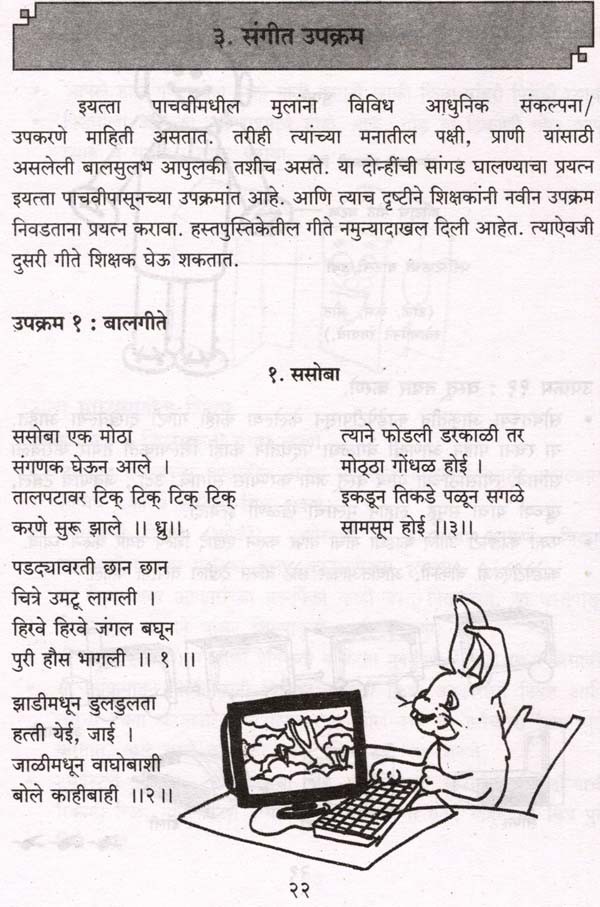 ३. संगीत उपक्रम
इयत्ता पाचवीमधील मुलांना विविध आधुनिक संकल्पना/
उपकरणे माहिती असतात. तरीही त्यांच्या मनातील पक्षी, प्राणी यांसाठी
असलेली बालसुलभ आपुलकी तशीच असते. या दोन्हींची सांगड घालण्याचा प्रयत्न
इयत्ता पाचवीपासूनच्या उपक्रमांत आहे. आणि त्याच दृष्टीने शिक्षकांनी नवीन उपक्रम
निवडताना प्रयत्न करावा. हस्तपुस्तिकेतील गीते नमुन्यादाखल दिली आहेत. त्याऐवजी
दुसरी गीते शिक्षक घेऊ शकतात.
उपक्रम १ : बालगीते
१. ससोबा
ससोबा एक मोठा
सगणक घेऊन आले ।
तालपटावर टिक् टिक् टिक् टिक्
करणे सुरू झाले ।। ध्रु।।
पडद्यावरती छान छान
चित्रे उमटू लागली ।
हिरवे हिरवे जंगल बघून
पुरी हौस भागली ।। १ ।।
झाडीमधून डुलडुलता
हत्ती येई, जाई ।
जाळीमधून वाघोबाशी
बोले काहीबाही ।।२।।
त्याने फोडली डरकाळी तर
मोठ्ठा गोंधळ होई ।
इकडून तिकडे पळून सगळे
सामसूम होई ।।३।।
२२